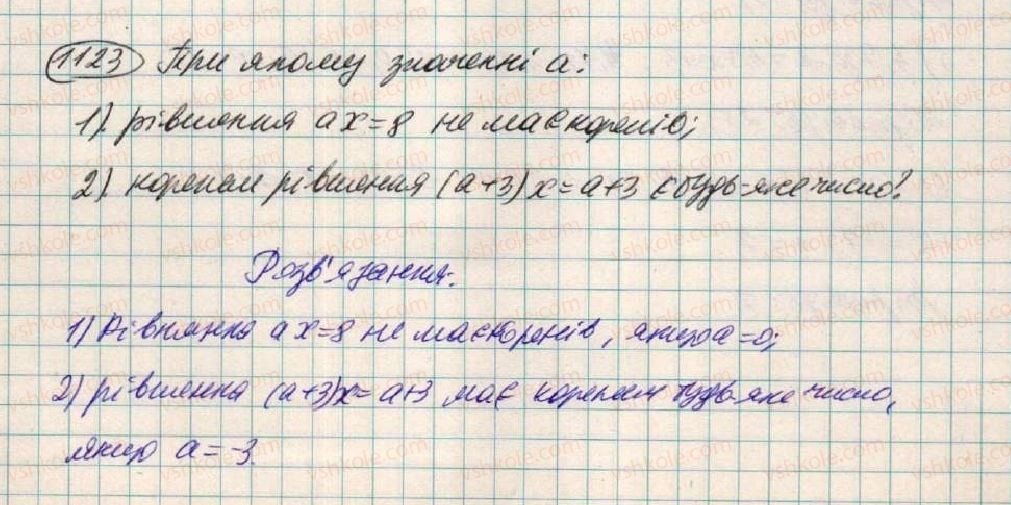 1123 При якому значенні а:
1). рівняння ах=8 не має коренів;
2). коренем рівняння (а+3)х=а+3 є будь-яке число?
Розв'язання.
1) Рівняння ах=8 не має коренів, якщо а=0;
2) рівняння (а+3)х=а+3 має коренем будь-яке число,
якщо а=-3.